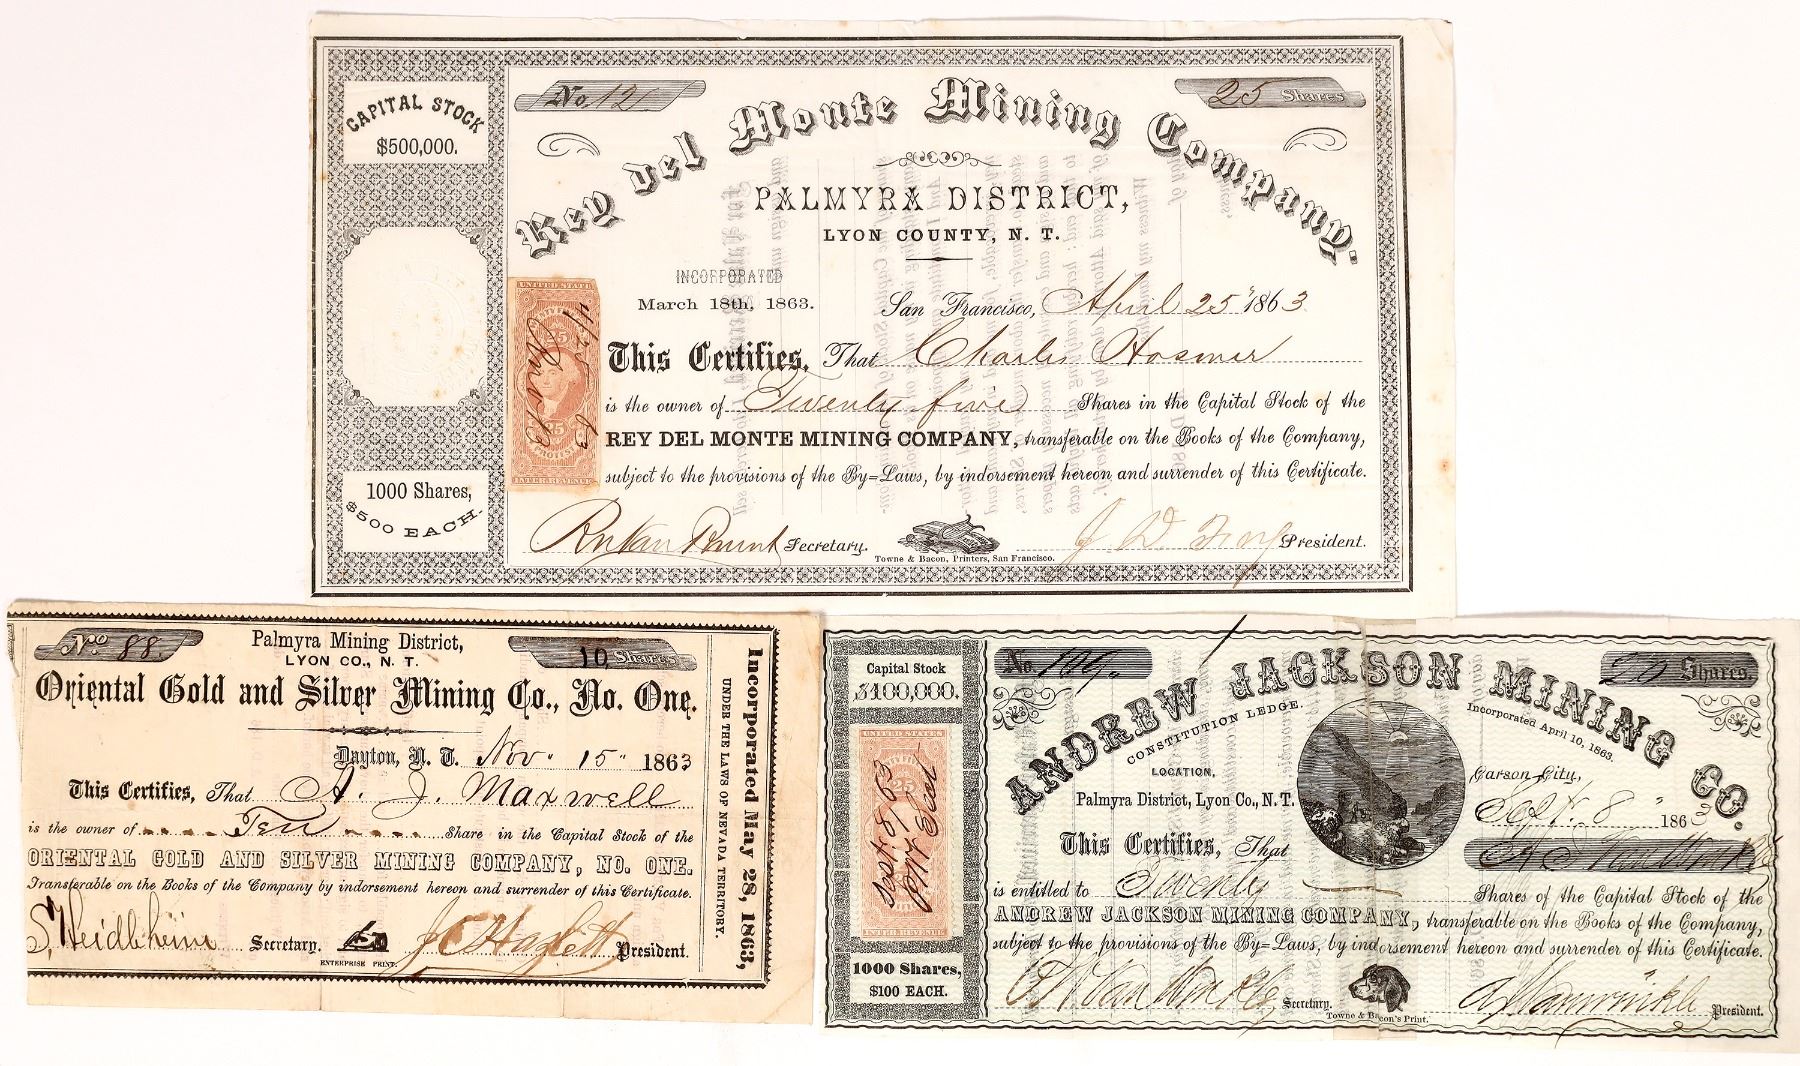 CAPITAL STOCK
$500,000.
1000 Shares,
$500 EACH.
No. 12
25 Shares
Rey del Monte Mining Company.
PALMYRA DISTRICT,
LYON COUNTY, N. T.
INCORPORATED
March 18th, 1863.
San Francisco, April 25" 1863
This Certifies, That Charles Hosmer
is the owner of Twenty five Shares in the Capital Stock of the
REY DEL MONTE MINING COMPANY, transferable on the Books of the Company,
subject to the provisions of the By=Laws, by indorsement hereon and surrender of this Certificate.
Secretary.
President.
Towne & Bacon, Printers, San Francisco.
UNITED STATES
25 25
4/25 63
INTER. REVENUE
No. 88.
Palmyra Mining District,
LYON CO., N. T.
10 Shares
Oriental Gold and Silver Mining Co., No. One.
Dayton, N. T. Nov. 15" 1863
This Certifies, That A. J. Maxwell
is the owner of Ten Share in the Capital Stock of the
ORIENTAL GOLD AND SILVER MINING COMPANY, NO. ONE.
Transferable on the Books of the Company by indorsement hereon and surrender of this Certificate.
S. Heidlheim Secretary.
J C Hazlett President.
ENTERPRISE PRINT.
UNDER THE LAWS OF NEVADA TERRITORY.
Incorporated May 28, 1863,
Capital Stock
$100,000.
UNITED STATES
Sept. 8/63
1000 Shares,
$100 EACH.
No. 109.
20 Shares.
ANDREW JACKSON MINING CO.
CONSTITUTION LEDGE.
Incorporated April 10, 1863.
LOCATION,
Palmyra District, Lyon Co., N. T.
Carson City,
Sept. 8" 1863
This Certifies, That
is entitled to Twenty Shares of the Capital Stock of the
ANDREW JACKSON MINING COMPANY, transferable on the Books of the Company,
subject to the provisions of the By=Laws, by indorsement hereon and surrender of this Certificate.
Van Winkle Secretary.
Vanwinkle President.
Towne & Bacon's Print.